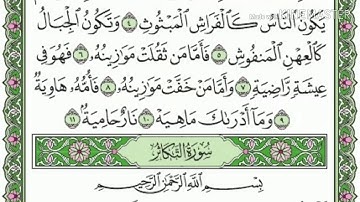 يَكُونُ ٱلنَّاسُ كَٱلْفَرَاشِ ٱلْمَبْثُوثِ ٤ وَتَكُونُ ٱلْجِبَالُ
كَٱلْعِهْنِ ٱلْمَنفُوشِ ٥ فَأَمَّا مَن ثَقُلَتْ مَوَٰزِينُهُۥ ٦ فَهُوَ فِى
عِيشَةٍ رَّاضِيَةٍ ٧ وَأَمَّا مَنْ خَفَّتْ مَوَٰزِينُهُۥ ٨ فَأُمُّهُۥ هَاوِيَةٌ
٩ وَمَآ أَدْرَىٰكَ مَا هِيَهْ ١٠ نَارٌ حَامِيَةٌۢ ١١
سُورَةُ ٱلتَّكَاثُرِ
بِسْمِ ٱللَّهِ ٱلرَّحْمَٰنِ ٱلرَّحِيمِ